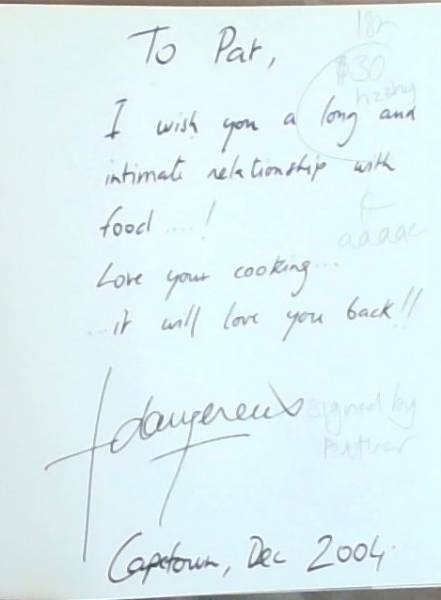 To Pat,
$30
I wish you a long and
intimate relationship with
food ....!
Love your cooking...
...it will love you back!!
signed by
Author
Capetown, Dec 2004.